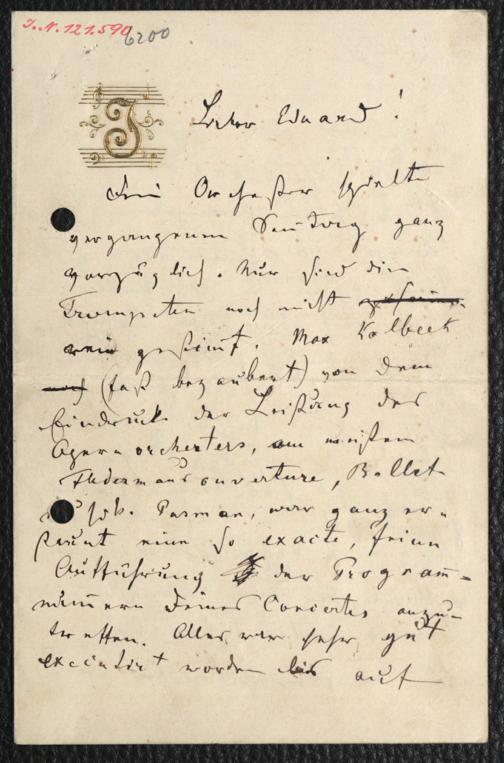 I. N. 121.590
6200
J
Lieber Eduard!
Dein Orchester spielte
vergangenen Sonntag ganz
vorzüglich. Nur sind die
Trompeten noch nicht
rein gestimt. Max Kalbeck
(fast bezaubert) von dem
Eindruck der Leistung des
Opernorchesters, am meisten
Fledermausouverture, Ballet
Pasman, war ganz er-
staunt eine so exacte, feine
Aufführung der Program̄-
num̄ern Deines Concertes anzu-
treffen. Alles war sehr gut
executirt worden bis auf